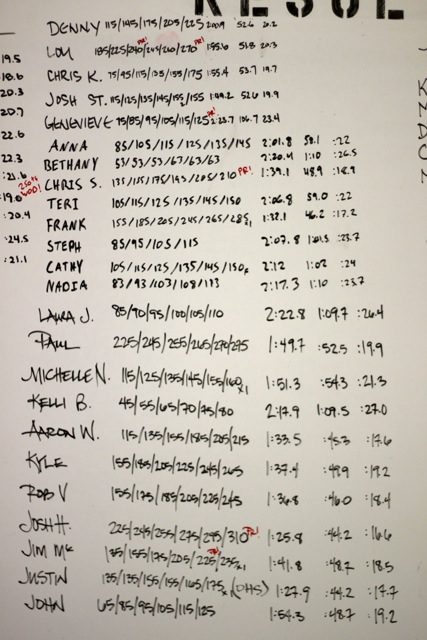 RESUL
DENNY 115/145/175/205/225 2:00.9 52.6 20.2
LOU 185/225/240/245/260/270 PR! 1:55.6 51.8 20.3
CHRIS K. 75/95/115/135/155/175 1:55.4 53.7 19.7
JOSH ST. 115/125/135/145/155/155 1:49.2 52.6 19.9
GENEVIEVE 75/85/95/105/115/125 PR! 2:23.7 1:06.7 23.4
ANNA 85/105/115/125/135/145 2:01.8 58.1 :22
BETHANY 53/53/53/67/63/63 2:20.4 1:10 :26.5
CHRIS S. 135/155/175/195/205/210 PR! 1:39.1 48.9 :18.9
TERI 105/115/125/135/145/150 2:06.8 59.0 :22
FRANK 155/185/205/245/265/285 1:32.1 46.2 :17.2
STEPH 85/95/105/115 2:07.8 1:01.5 :23.7
CATHY 105/115/125/135/145/150 2:12 1:02 :24
NADIA 83/93/103/108/113 2:17.3 1:10 :23.7
LAURA J. 85/90/95/100/105/110 2:22.8 1:09.7 :26.4
PAUL 225/245/255/265/270/275 1:49.7 :52.5 :19.9
MICHELLE N. 115/125/135/145/155/160 x1 1:51.3 :54.3 :21.3
KELLI B. 45/55/65/70/75/80 2:17.9 1:09.5 :27.0
AARON W. 115/135/155/185/205/215 1:33.5 :45.3 :17.6
KYLE 155/185/205/225/245/265 1:37.4 :49.9 :19.2
ROB V 155/175/185/205/225/245 1:36.8 :46.0 :18.4
JOSH H. 225/245/255/275/295/310 PR! 1:25.8 :44.2 :16.6
JIM Mc 135/155/175/205/225/235 x1 PR! 1:41.8 :48.2 :18.5
JUSTIN 135/135/155/155/165/175 x (DHS) 1:27.9 :44.2 :17.7
JOHN 65/85/95/105/115/125 1:54.3 :48.7 :19.2
19.5
18.6
20.3
20.7
22.6
22.3
:21.6
19.0
:20.4
:24.5
:21.1